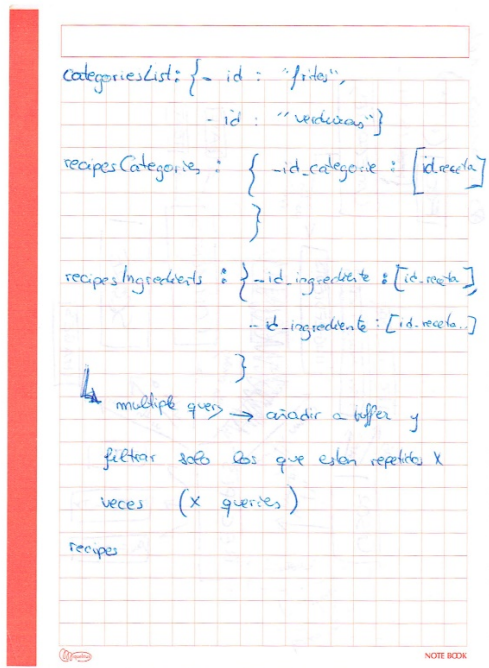 categoriesList: { - id : "frites",
- id : "verduras"}
recipesCategories : { -id_categorie : [id.receta]
}
recipesIngredients : { -id_ingrediente : [id_receta],
- id_ingrediente : [id_receta..]
}
multiple query → añadir a buffer y
filtrar solo los que esten repetidos X
veces (X queries)
recipes
NOTE BOOK